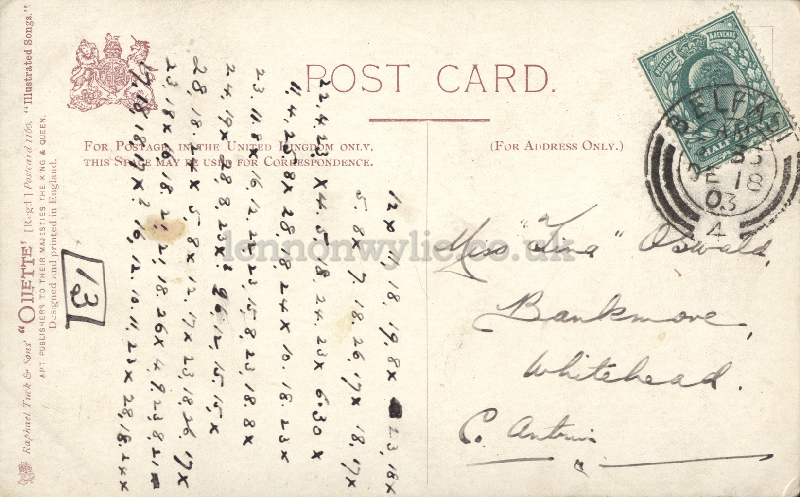 Raphael Tuck & Sons' "OILETTE" [Regd.] Postcard 1160. "Illustrated Songs."
ART PUBLISHERS TO THEIR MAJESTIES THE KING & QUEEN.
Designed and printed in England.
POST CARD.
FOR POSTAGE IN THE UNITED KINGDOM ONLY,
THIS SPACE MAY BE USED FOR CORRESPONDENCE.
(FOR ADDRESS ONLY.)
12 x 11.18.19.8x 23,18x
5.8x 7.18.26,17x 18,17x
22.4.23. x 4.5.18.24.23x 6.30 x
11.4.25.8x 28.18.24x 10.18.23x
23.11.8x 16,12,22,23,15,8,23.18.8x
24,19x 28,8,23x? 26,12,15,15x
28.18.24x 5,8x 12.17x 23,18,26,17x
23.18x 16.18.21,21,18.26x 4,9,23,8,21-
17,18,18,17x? 16,12,10,11,23x 28,18,24x
13
Miss "Ina" Oswald,
Bankmore,
Whitehead.
C. Antrim
BELFAST
DE 18
03
4
lennonwylie.co.uk